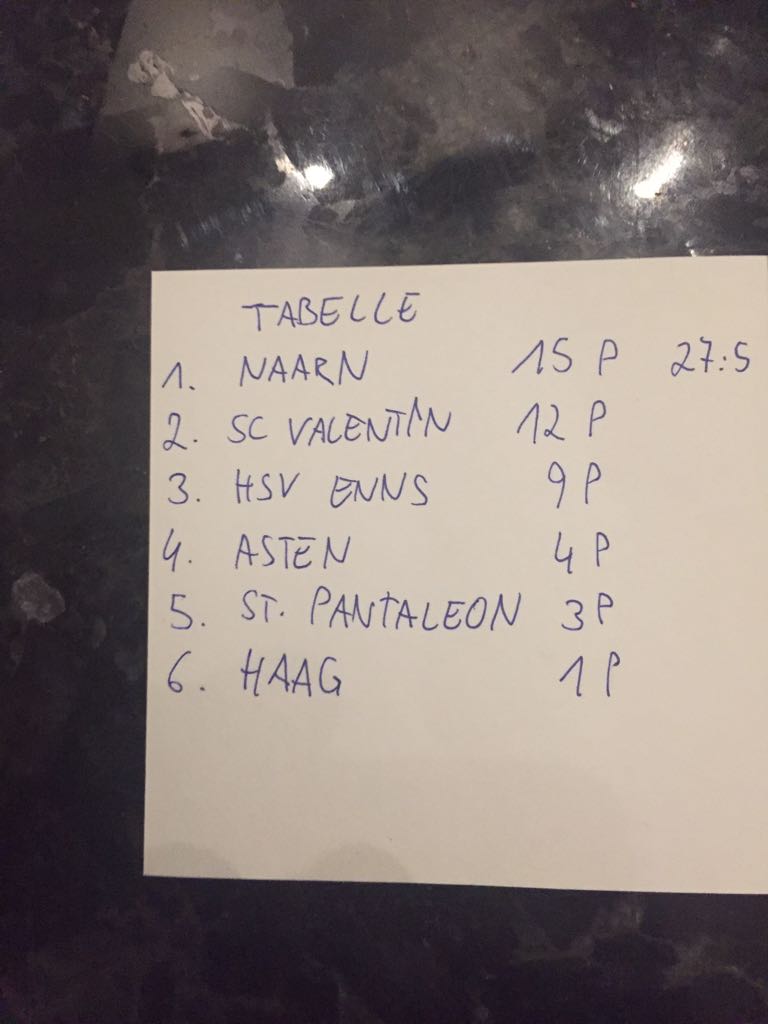 TABELLE
1. NAARN 15 P 27:5
2. SC VALENTIN 12 P
3. HSV ENNS 9 P
4. ASTEN 4 P
5. ST. PANTALEON 3 P
6. HAAG 1 P